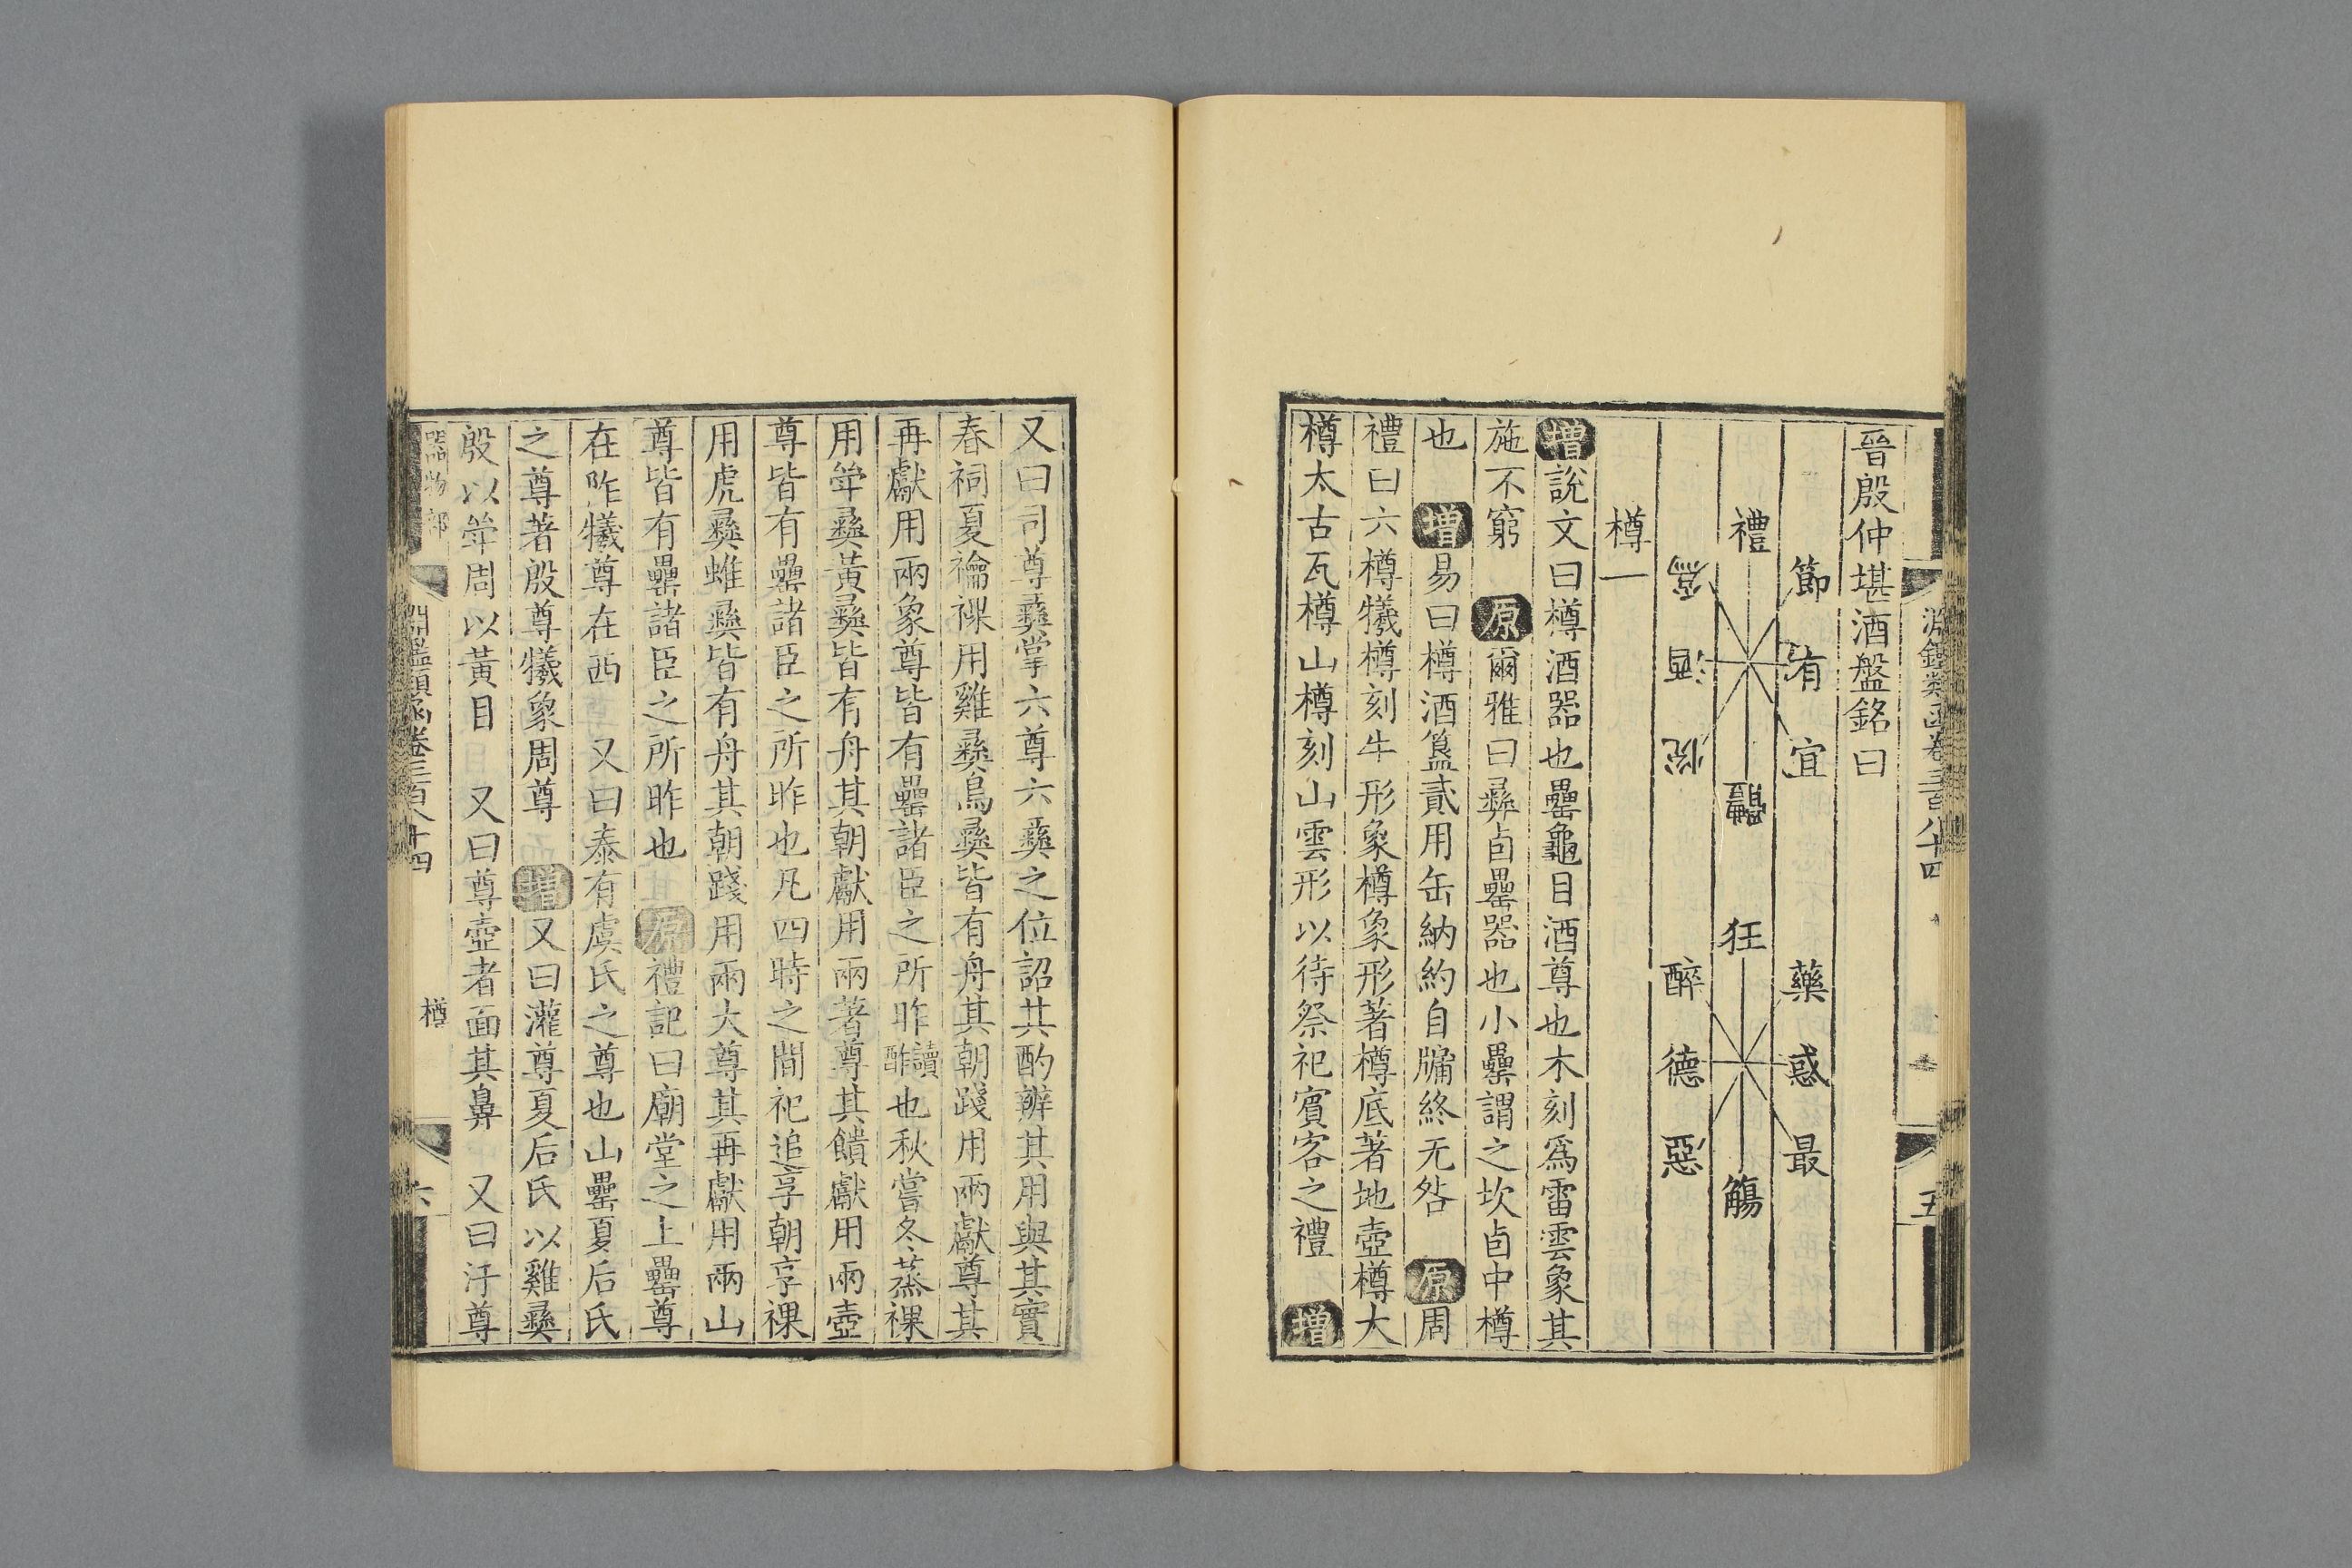 淵鑑類函卷三百八十四
五
晉殷仲堪酒盤銘曰
節有宜
藥惑最
禮
狂
觴
醉德惡
樽一
增說文曰樽酒器也罍龜目酒尊也木刻爲雷雲象其
施不窮 原爾雅曰彞卣罍器也小罍謂之坎卣中樽
也 增易曰樽酒簋貳用缶納約自牖終无咎 原周
禮曰六樽犧樽刻牛形象樽象形著樽底著地壺樽大
樽太古瓦樽山樽刻山雲形以待祭祀賓客之禮 增
又曰司尊彞掌六尊六彞之位詔其酌辦其用與其實
春祠夏禴祼用雞彞鳥彞皆有舟其朝踐用兩獻尊其
再獻用兩象尊皆有罍諸臣之所昨讀酢也秋嘗冬蒸祼
用斝彞黃彞皆有舟其朝獻用兩著尊其饋獻用兩壺
尊皆有罍諸臣之所昨也凡四時之間祀追享朝享祼
用虎彞蜼彞皆有舟其朝踐用兩大尊其再獻用兩山
尊皆有罍諸臣之所昨也 原禮記曰廟堂之上罍尊
在阼犧尊在西 又曰泰有虞氏之尊也山罍夏后氏
之尊著殷尊犧象周尊 增又曰灌尊夏后氏以雞彞
殷以斝周以黃目 又曰尊壺者面其鼻 又曰汙尊
器物部 淵鑑類函卷三百八十四 樽
六